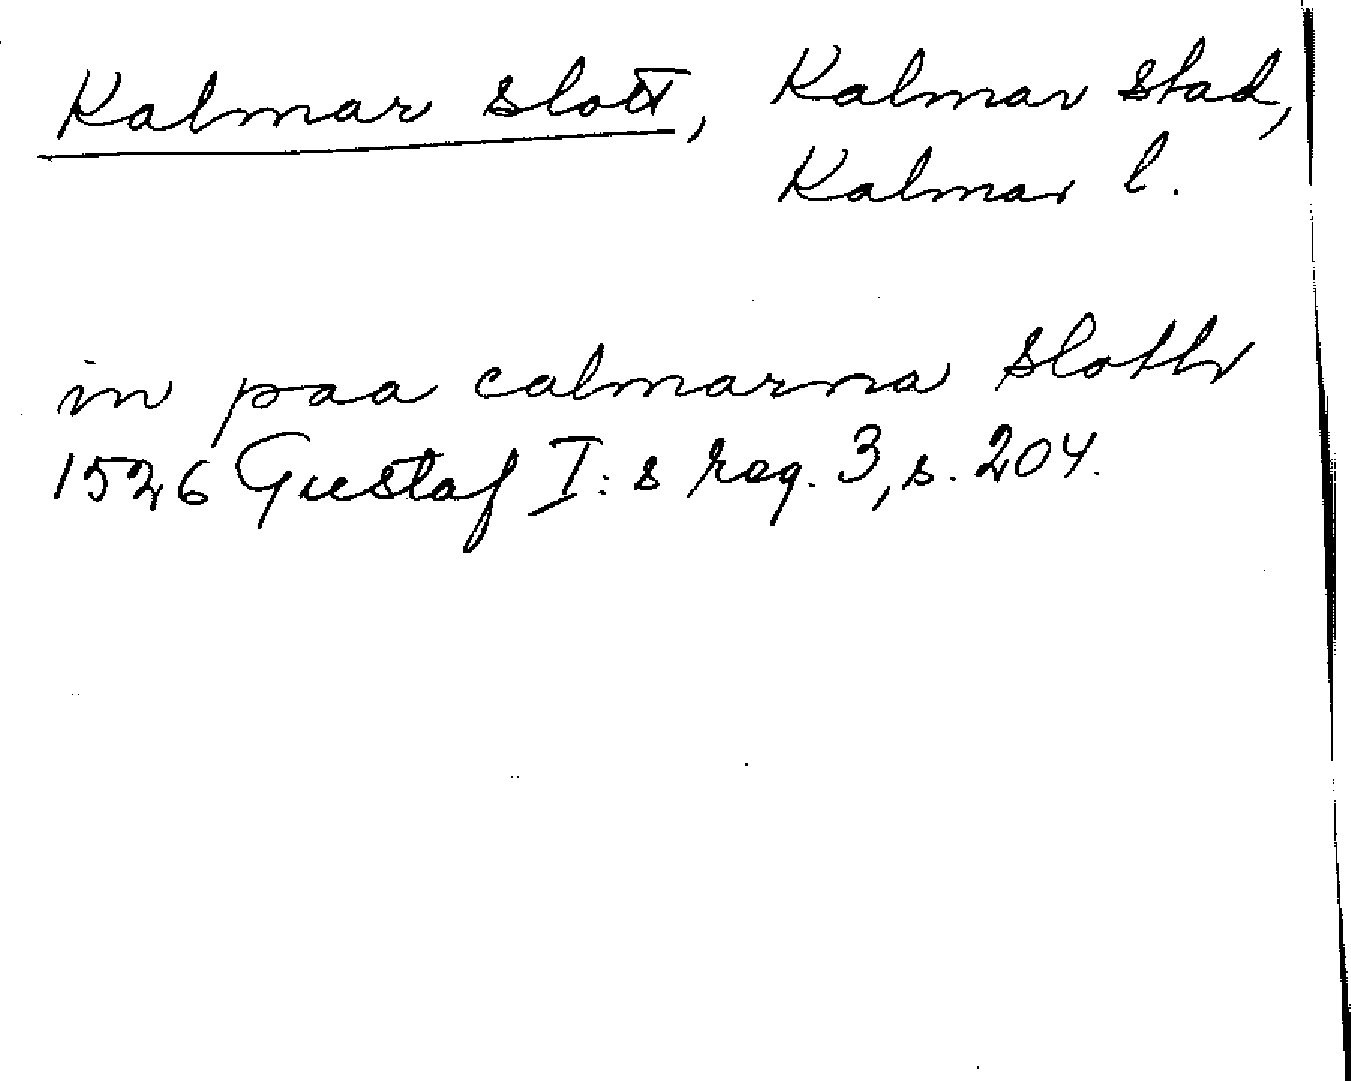 Kalmar slott, Kalmar stad,
Kalmar l.
in paa calmarna slotth
1526 Gustaf I:s reg. 3, s. 204.